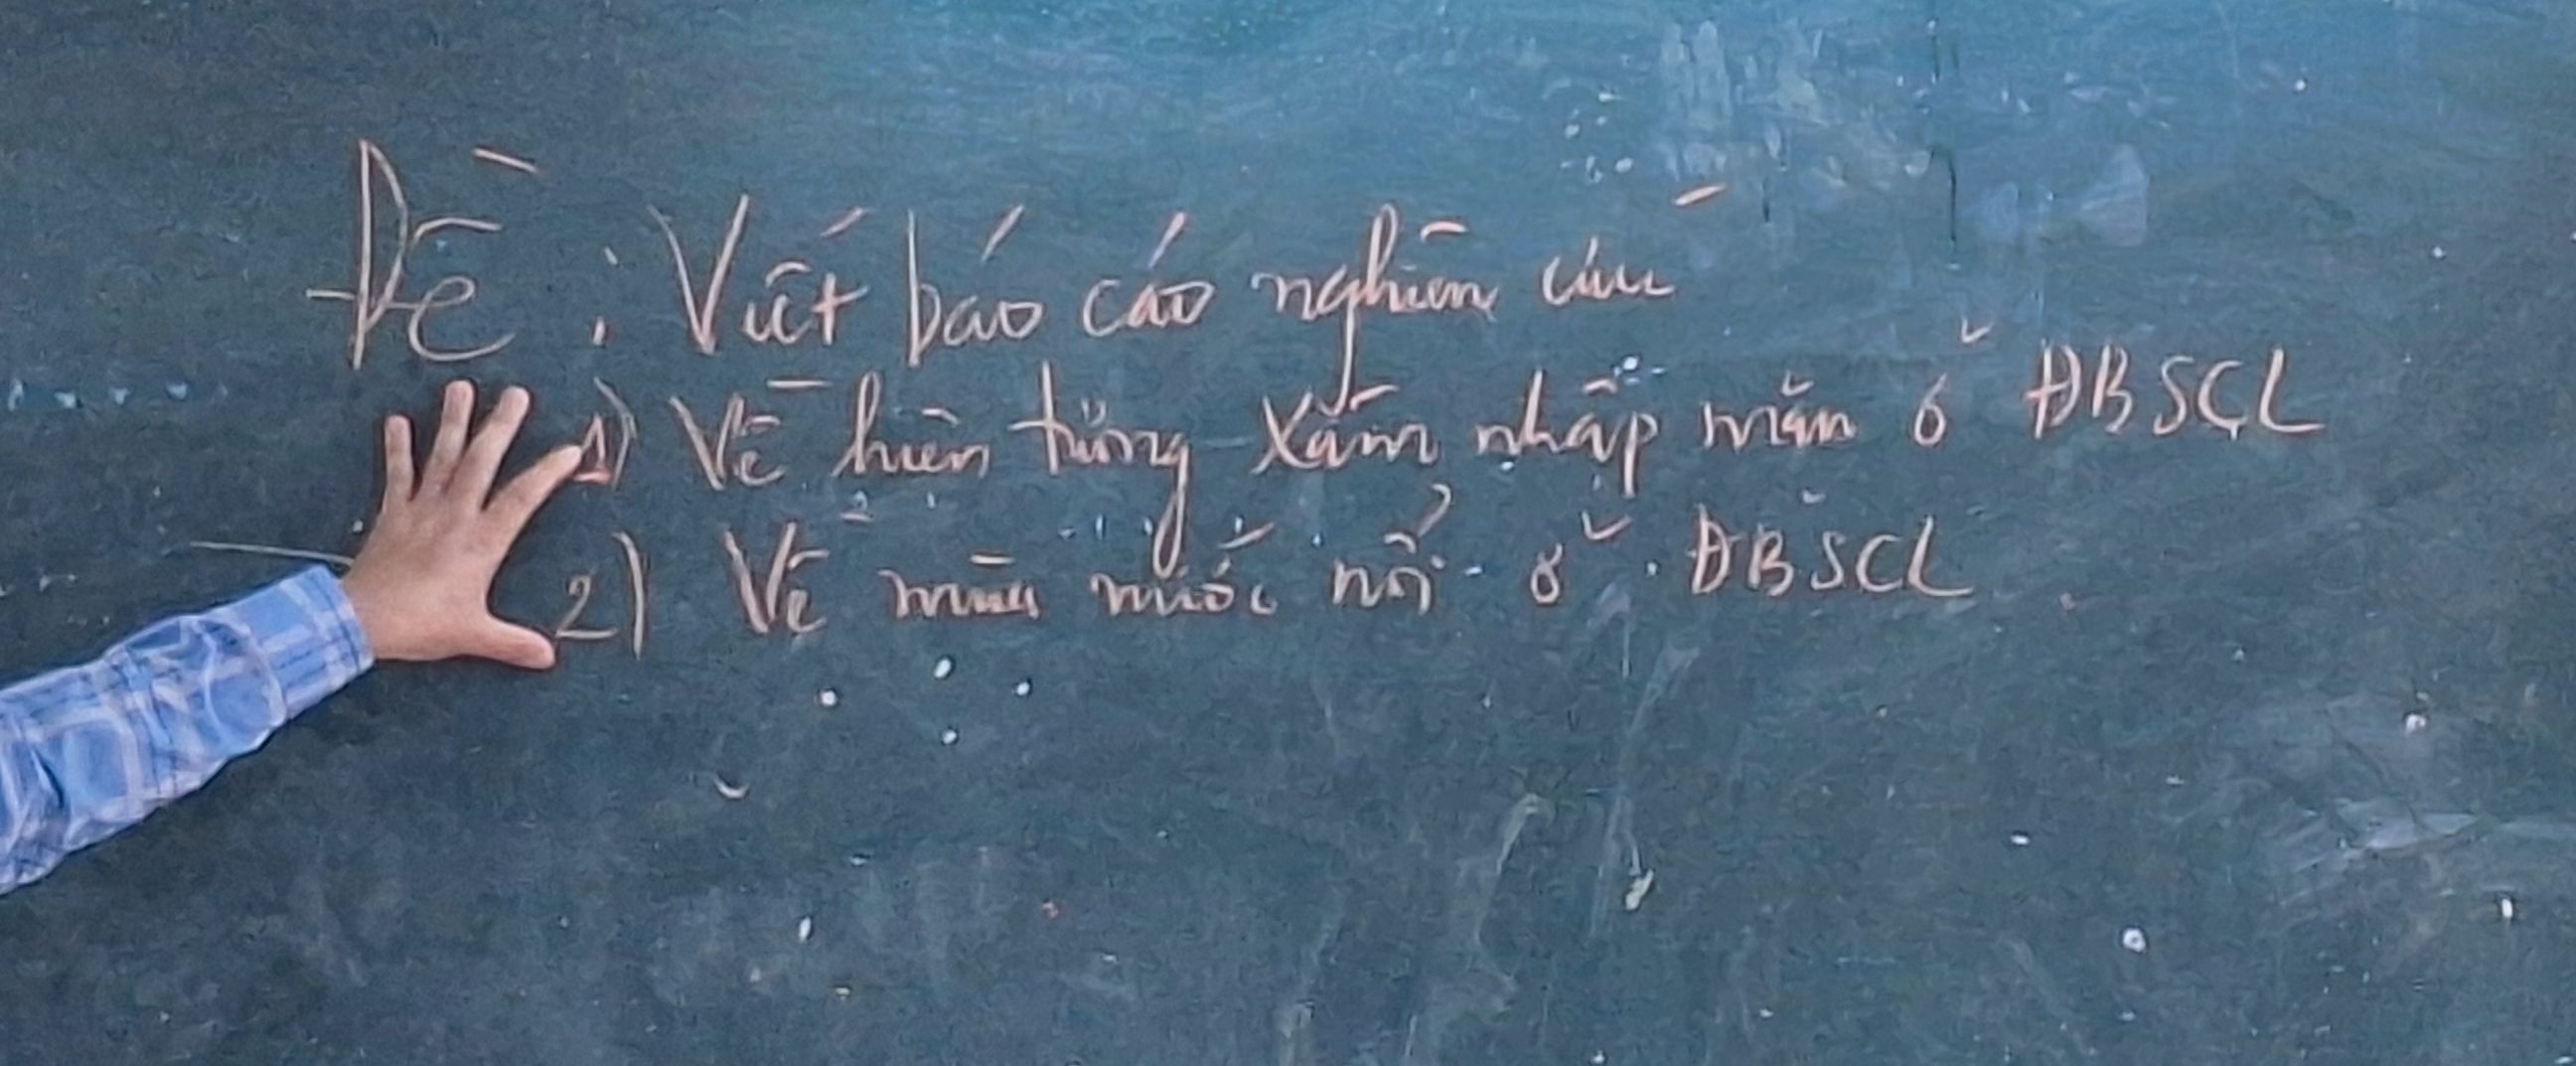 Đề: Viết báo cáo nghiên cứu
1) Về hiện tượng xâm nhập mặn ở ĐBSCL
2) Về mùa nước nổi ở ĐBSCL